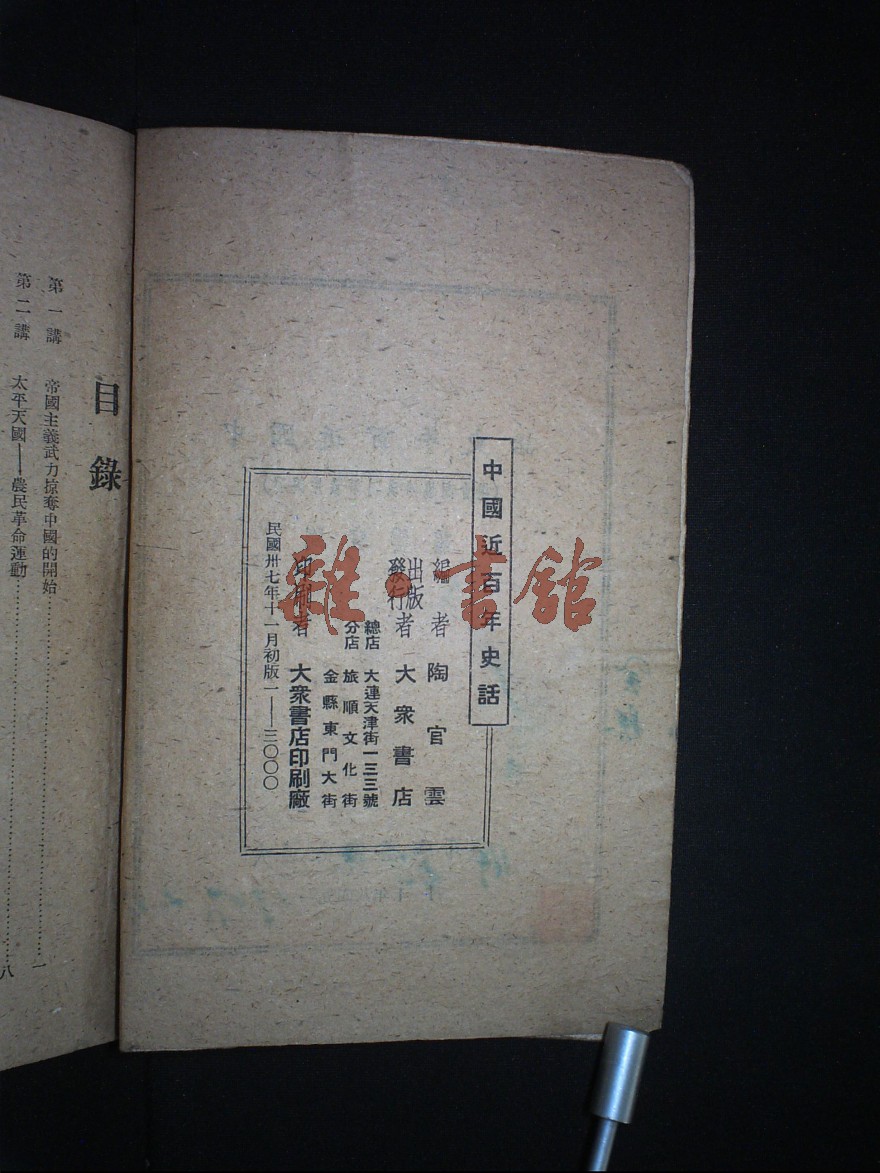 中國近百年史話
編者 陶官雲
出版
發行者 大衆書店
總店 大連天津街一三三號
分店 旅順文化街
金縣東門大街
印刷者 大衆書店印刷廠
民國卅七年十一月初版一——三〇〇〇
目錄
第一講 帝國主義武力掠奪中國的開始……一
第二講 太平天國——農民革命運動……八
雜·書館